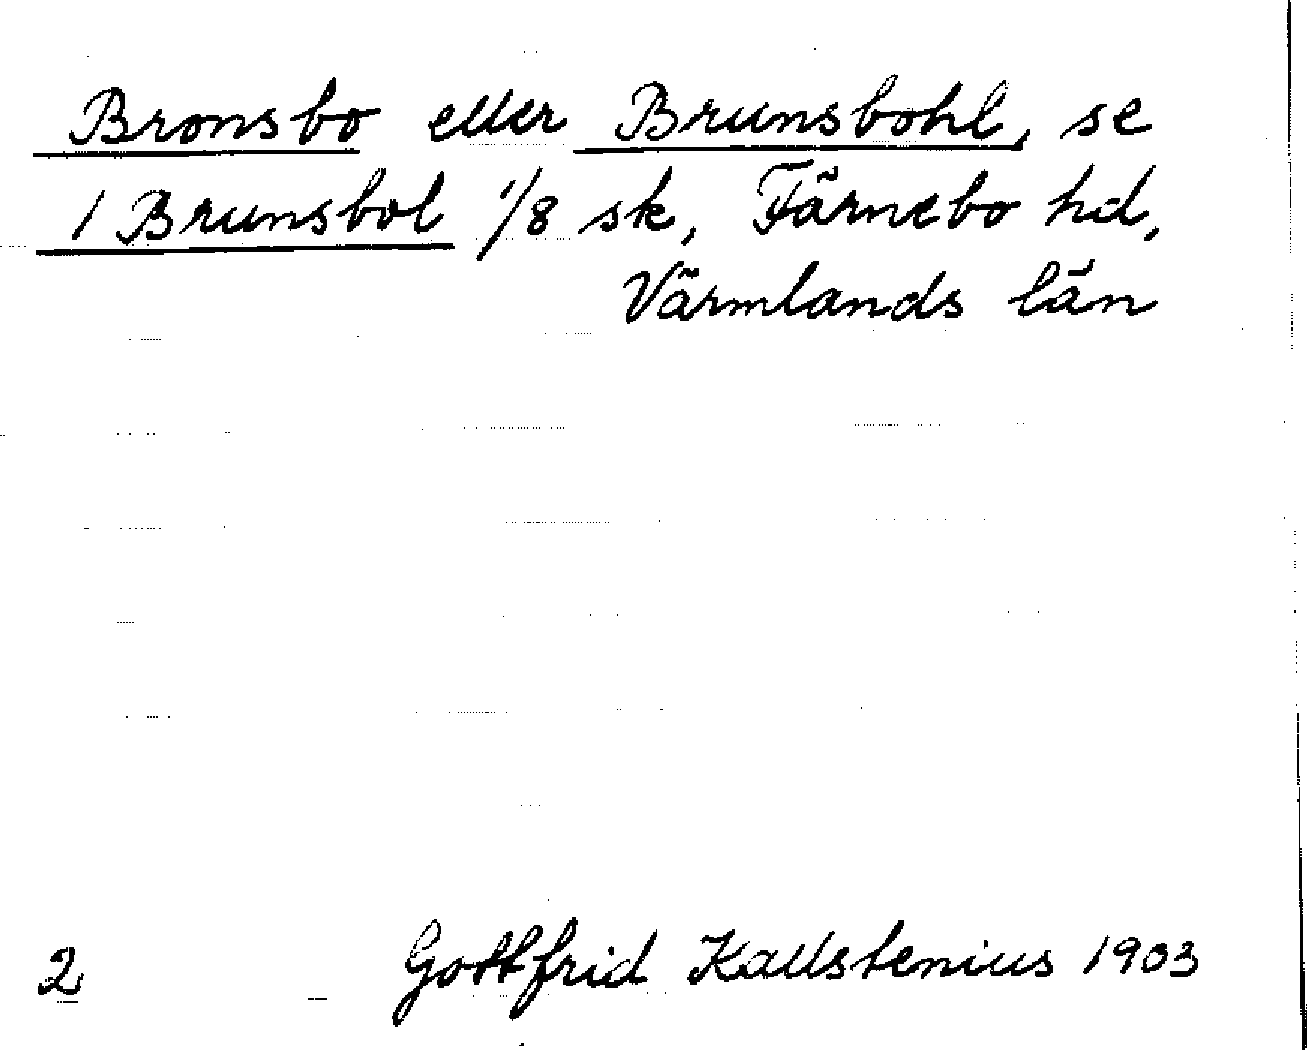 Bronsbo eller Brunsbohl, se
1 Brunsbol 1/8 sk, Färnebo hd,
Värmlands län
2 Gottfrid Kallstenius 1903